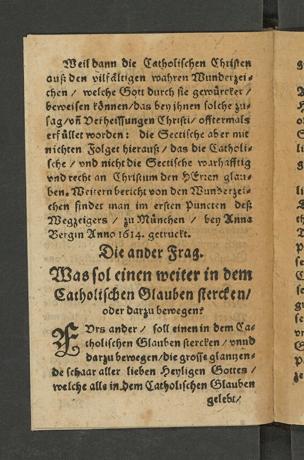 Weil dann die Catholischen Christen
auß den vilfältigen wahren Wunderzei-
chen / welche Gott durch sie gewürcket /
beweisen können / das bey ihnen solche zu-
sag / vñ Verheissungen Christi / offtermals
erfüllet worden : die Sectische aber mit
nichten Folget hierauß / das die Catholi-
sche / vnd nicht die Sectische warhafftig
vnd recht an Christum den HErren glau-
ben. Weitern bericht von den Wunderzei-
chen findet man im ersten Puncten deß
Wegzeigers / zu München / bey Anna
Bergin Anno 1614. getruckt.
Die ander Frag.
Was sol einen weiter in dem
Catholischen Glauben stercken /
oder darzu bewegen?
FUrs ander / soll einen in dem Ca-
tholischen Glauben stercken / vnnd
darzu bewegen / die grosse glantzen-
de schaar aller lieben Heyligen Gottes /
welche alls in dem Catholischen Glauben
gelebt /